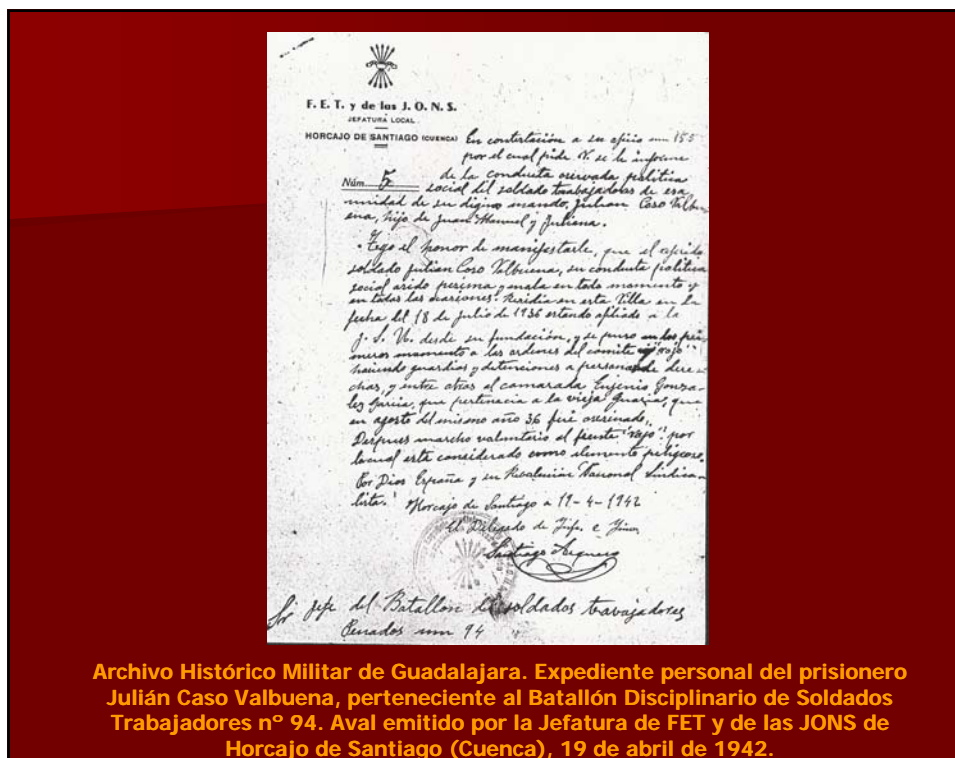 F. E. T. y de las J. O. N. S.
JEFATURA LOCAL
HORCAJO DE SANTIAGO (CUENCA)
Núm. 5
En contestación a su oficio num 155
por el cual pide V. se le informe
de la conducta oservada politica
social del soldado trabajadores de esa
unidad de su digno mando, Julian Caso Valbu-
ena, hijo de Juan Manuel y Juliena.
Tego el honor de manifestarle, que el referido
soldado Julian Caso Valbuena, su conducta politica
social asido pesima y mala en todo momento y
en todas las ocasiones. Residia en esta Villa en la
fecha del 18 de Julio de 1936 estando afiliado a la
J. S. U. desde su fundación, y se puso en los pri-
meros momento a las ordenes del comite "rojo"
haciendo guardias y detenciones a personas de dere-
chas, y entre otras al camarada Eugenio Gonza-
lez Garcia, que pertenecia a la vieja Guardia, que
en agosto del mismo año 36 fué asesinado.
Despues marcho voluntario al frente "rojo" por
lo cual esta considerado como elemento peligroso.
Por Dios España y su Revolucion Nacional Sindica-
lista.
Horcajo de Santiago a 19-4-1942
El Delegado de
Santiago
Sr Jefe del Batallon de soldados travajadores
Penados num 94
Archivo Histórico Militar de Guadalajara. Expediente personal del prisionero
Julián Caso Valbuena, perteneciente al Batallón Disciplinario de Soldados
Trabajadores nº 94. Aval emitido por la Jefatura de FET y de las JONS de
Horcajo de Santiago (Cuenca), 19 de abril de 1942.